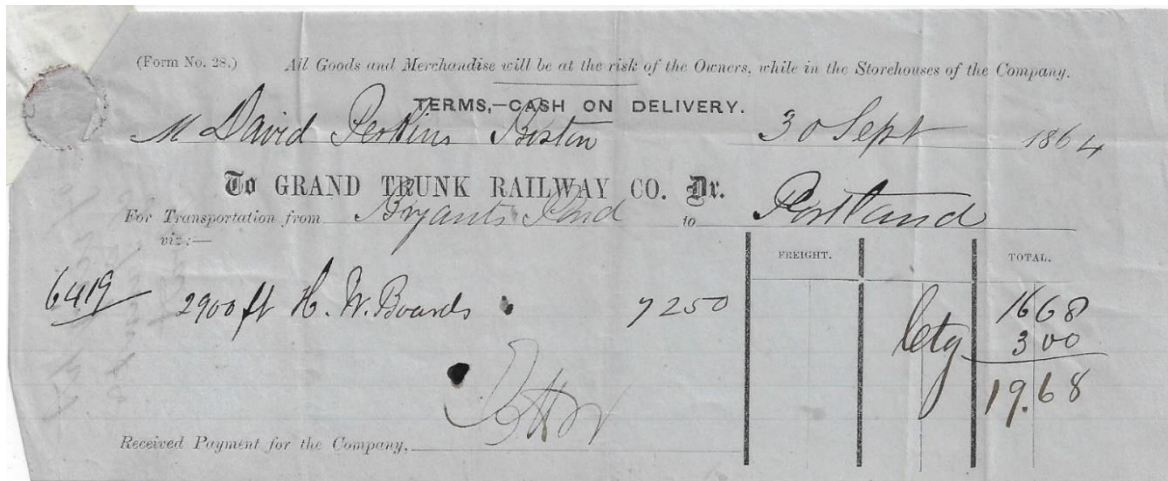 (Form No. 28.) All Goods and Merchandise will be at the risk of the Owners, while in the Storehouses of the Company.
TERMS,—CASH ON DELIVERY.
M David Perkins Boston 30 Sept 1864
To GRAND TRUNK RAILWAY CO. Dr.
For Transportation from Bryants Pond to Portland
viz:—
FREIGHT. TOTAL.
6419 2900 ft H. W. Boards 7250 16 68
ctg 3 00
19.68
Received Payment for the Company,